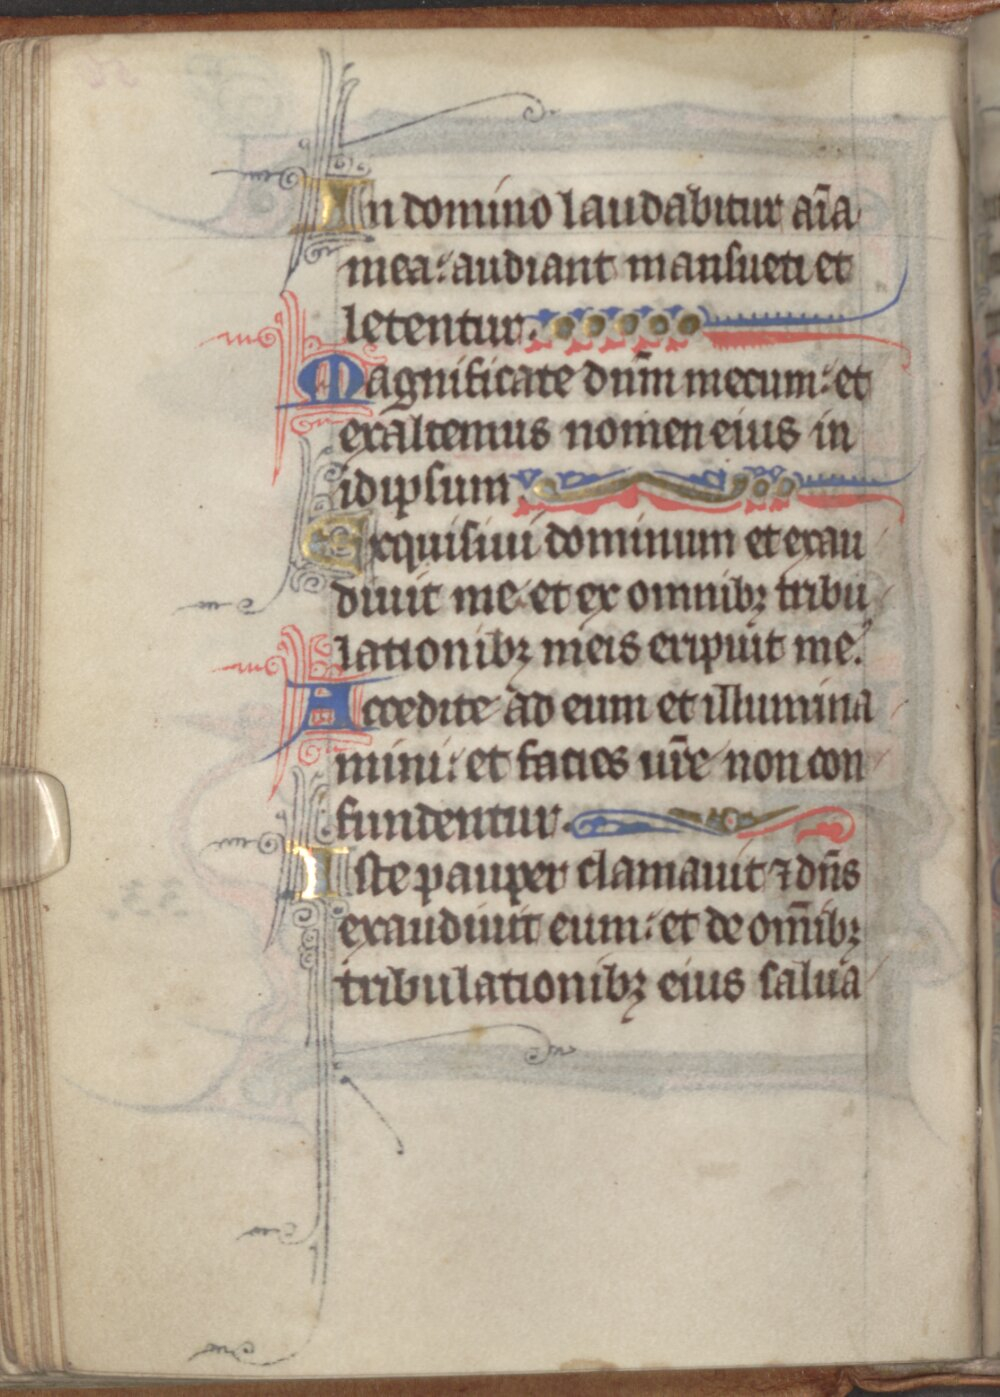 In domino laudabitur aīa
mea: audiant mansueti et
letentur.
Magnificate dūm mecum: et
exaltemus nomen eius in
idipsum.
Exquisiui dominum et exau
diuit me et ex omnibꝫ tribu
lationibꝫ meis eripuit me.
Accedite ad eum et illumina
mini: et facies ur̄e non con
fundentur.
Iste pauper clamauit ⁊ dn̄s
exaudiuit eum: et de om̄ibꝫ
tribulationibꝫ eius salua